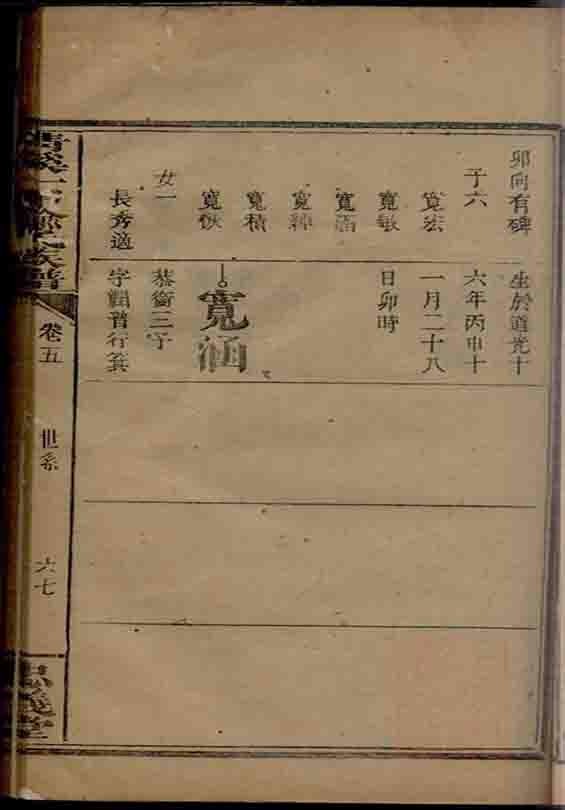 卯向有碑
子六
寬宏
寬敏
寬涵
寬
寬積
寬
女一
長秀適
生於道光十
六年丙申十
一月二十八
日卯時
寬涵
恭衡三子
字潤普行箕
族譜
卷五
世系
六七
忠義堂